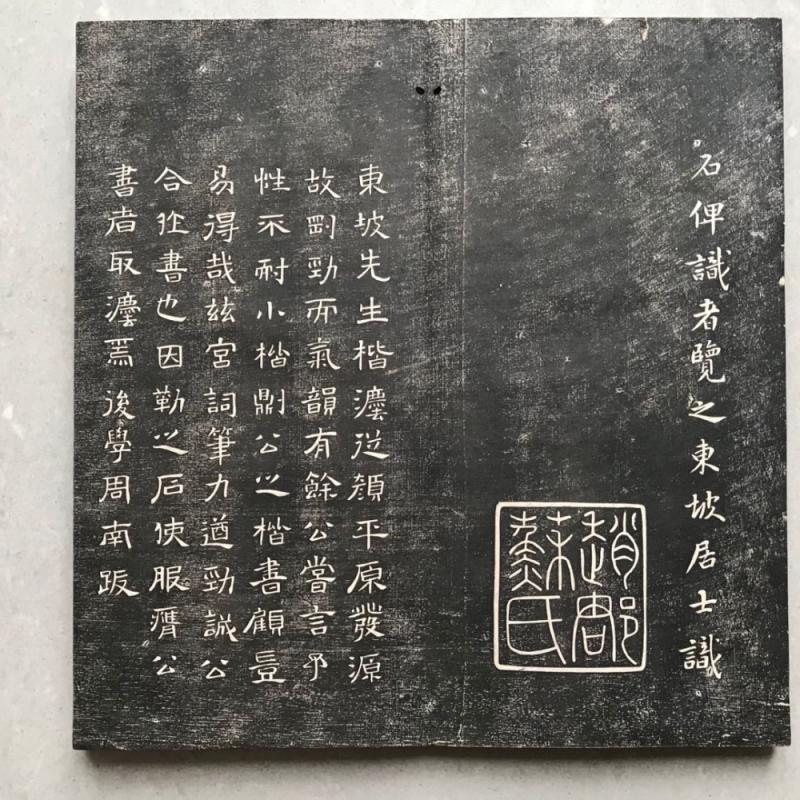 石俾識者覽之東坡居士識
趙郡蘇氏
東坡先生楷灋從顏平原發源
故剛勁而氣韻有餘公嘗言予
性不耐小楷則公之楷書顧豈
易得哉茲宮詞筆力遒勁誠公
合作書也因勒之石使服膺公
書者取灋焉後學周南跋